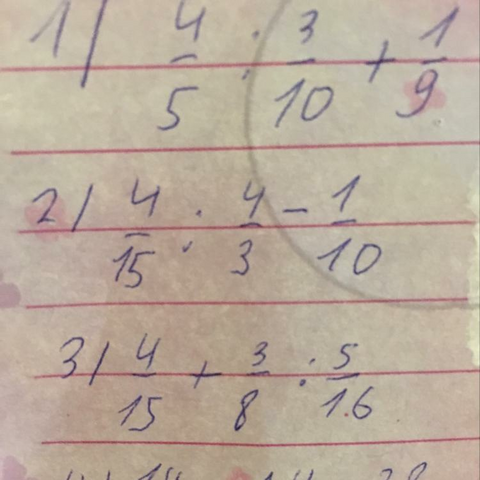 1) 4/5 : 3/10 + 1/9
2) 4/15 : 4/3 - 1/10
3) 4/15 + 3/8 : 5/16